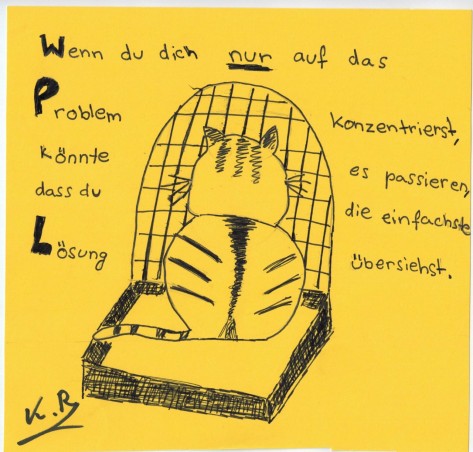 Wenn du dich nur auf das
Problem konzentrierst,
könnte es passieren,
dass du die einfachste
Lösung übersiehst.
K.R